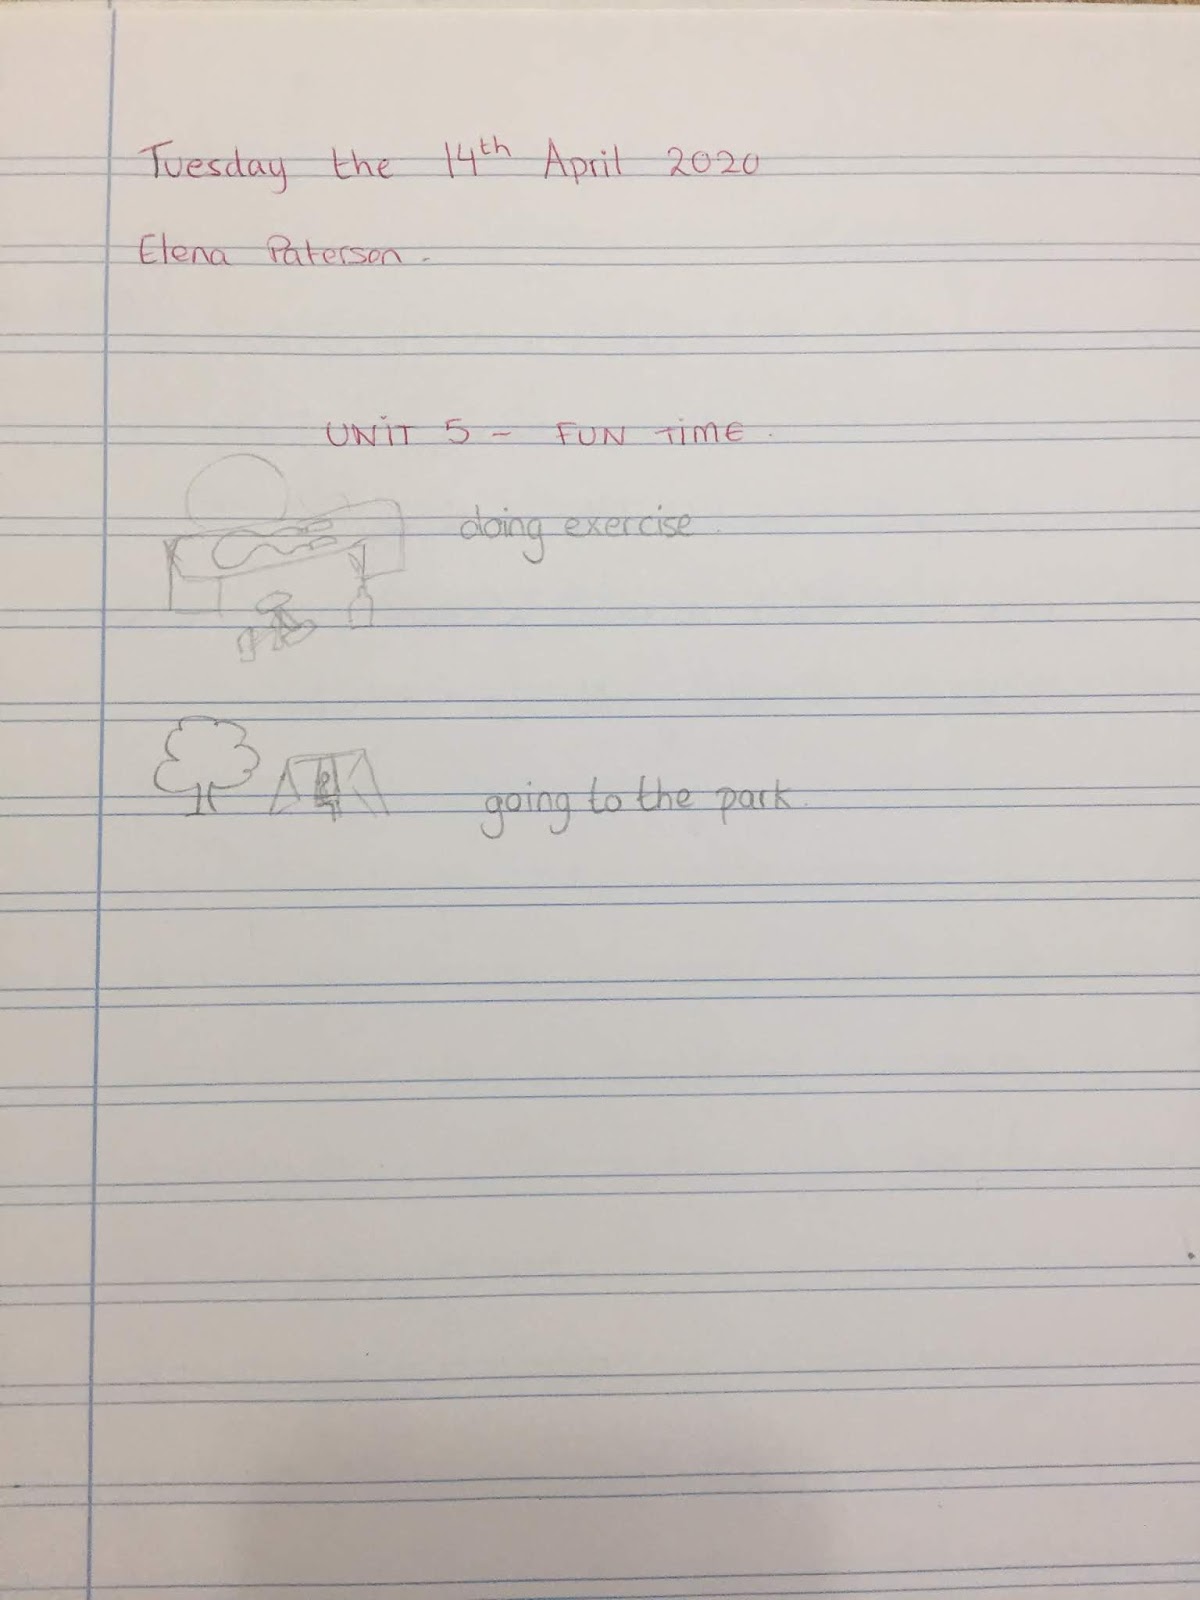 Tuesday the 14th April 2020
Elena Paterson.
UNIT 5 - FUN TIME.
doing exercise.
going to the park.